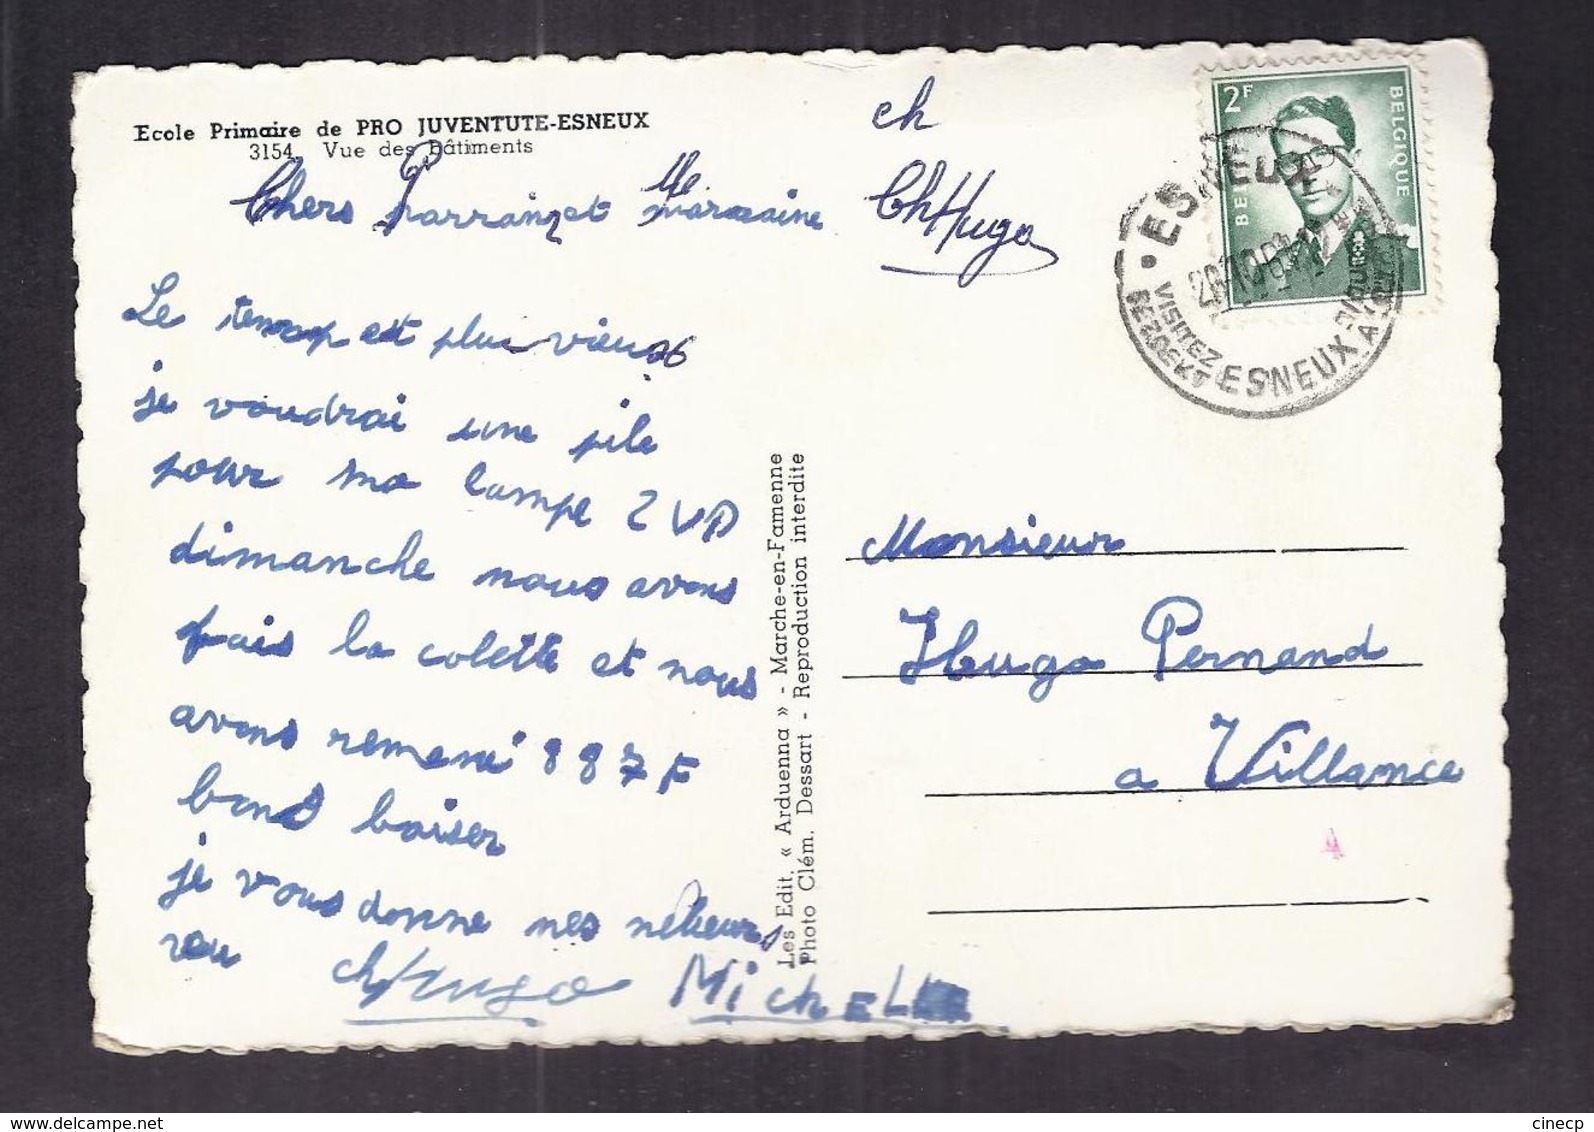 Ecole Primaire de PRO JUVENTUTE-ESNEUX
3154. Vue des Bâtiments
ch
Chers Parrain et Marraine
Ch Hugo
Le temp est pluvieux
je voudrai une pile
pour ma lampe 2 VD
dimanche nous avons
fais la colette et nous
avons remené 887 F
bons baiser
je vous donne mes
ch Hugo Michel
Les Edit. « Arduenna » - Marche-en-Famenne
Photo Clém. Dessart - Reproduction interdite
2F
BELGIQUE
BELGIE
ESNEUX
VISITEZ ESNEUX
Monsieur
Hugo Fernand
a Villance
4
delcampe.net
cinecp